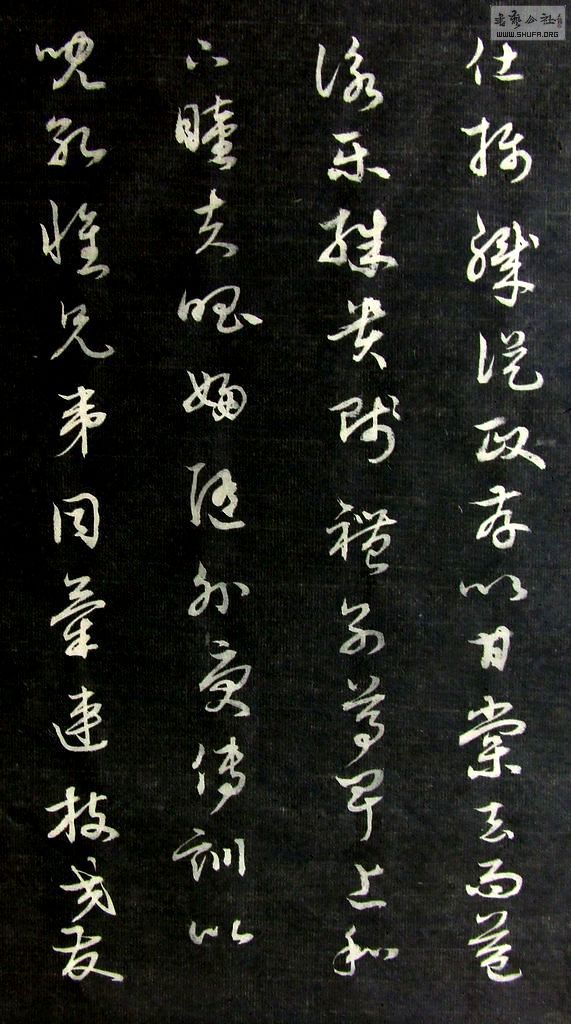 書藝公社
WWW.SHUFA.ORG
仕攝職從政存以甘棠去而益
詠樂殊貴賤禮別尊卑上和
下睦夫唱婦隨外受傅訓
兒孔懷兄弟同氣連枝交友